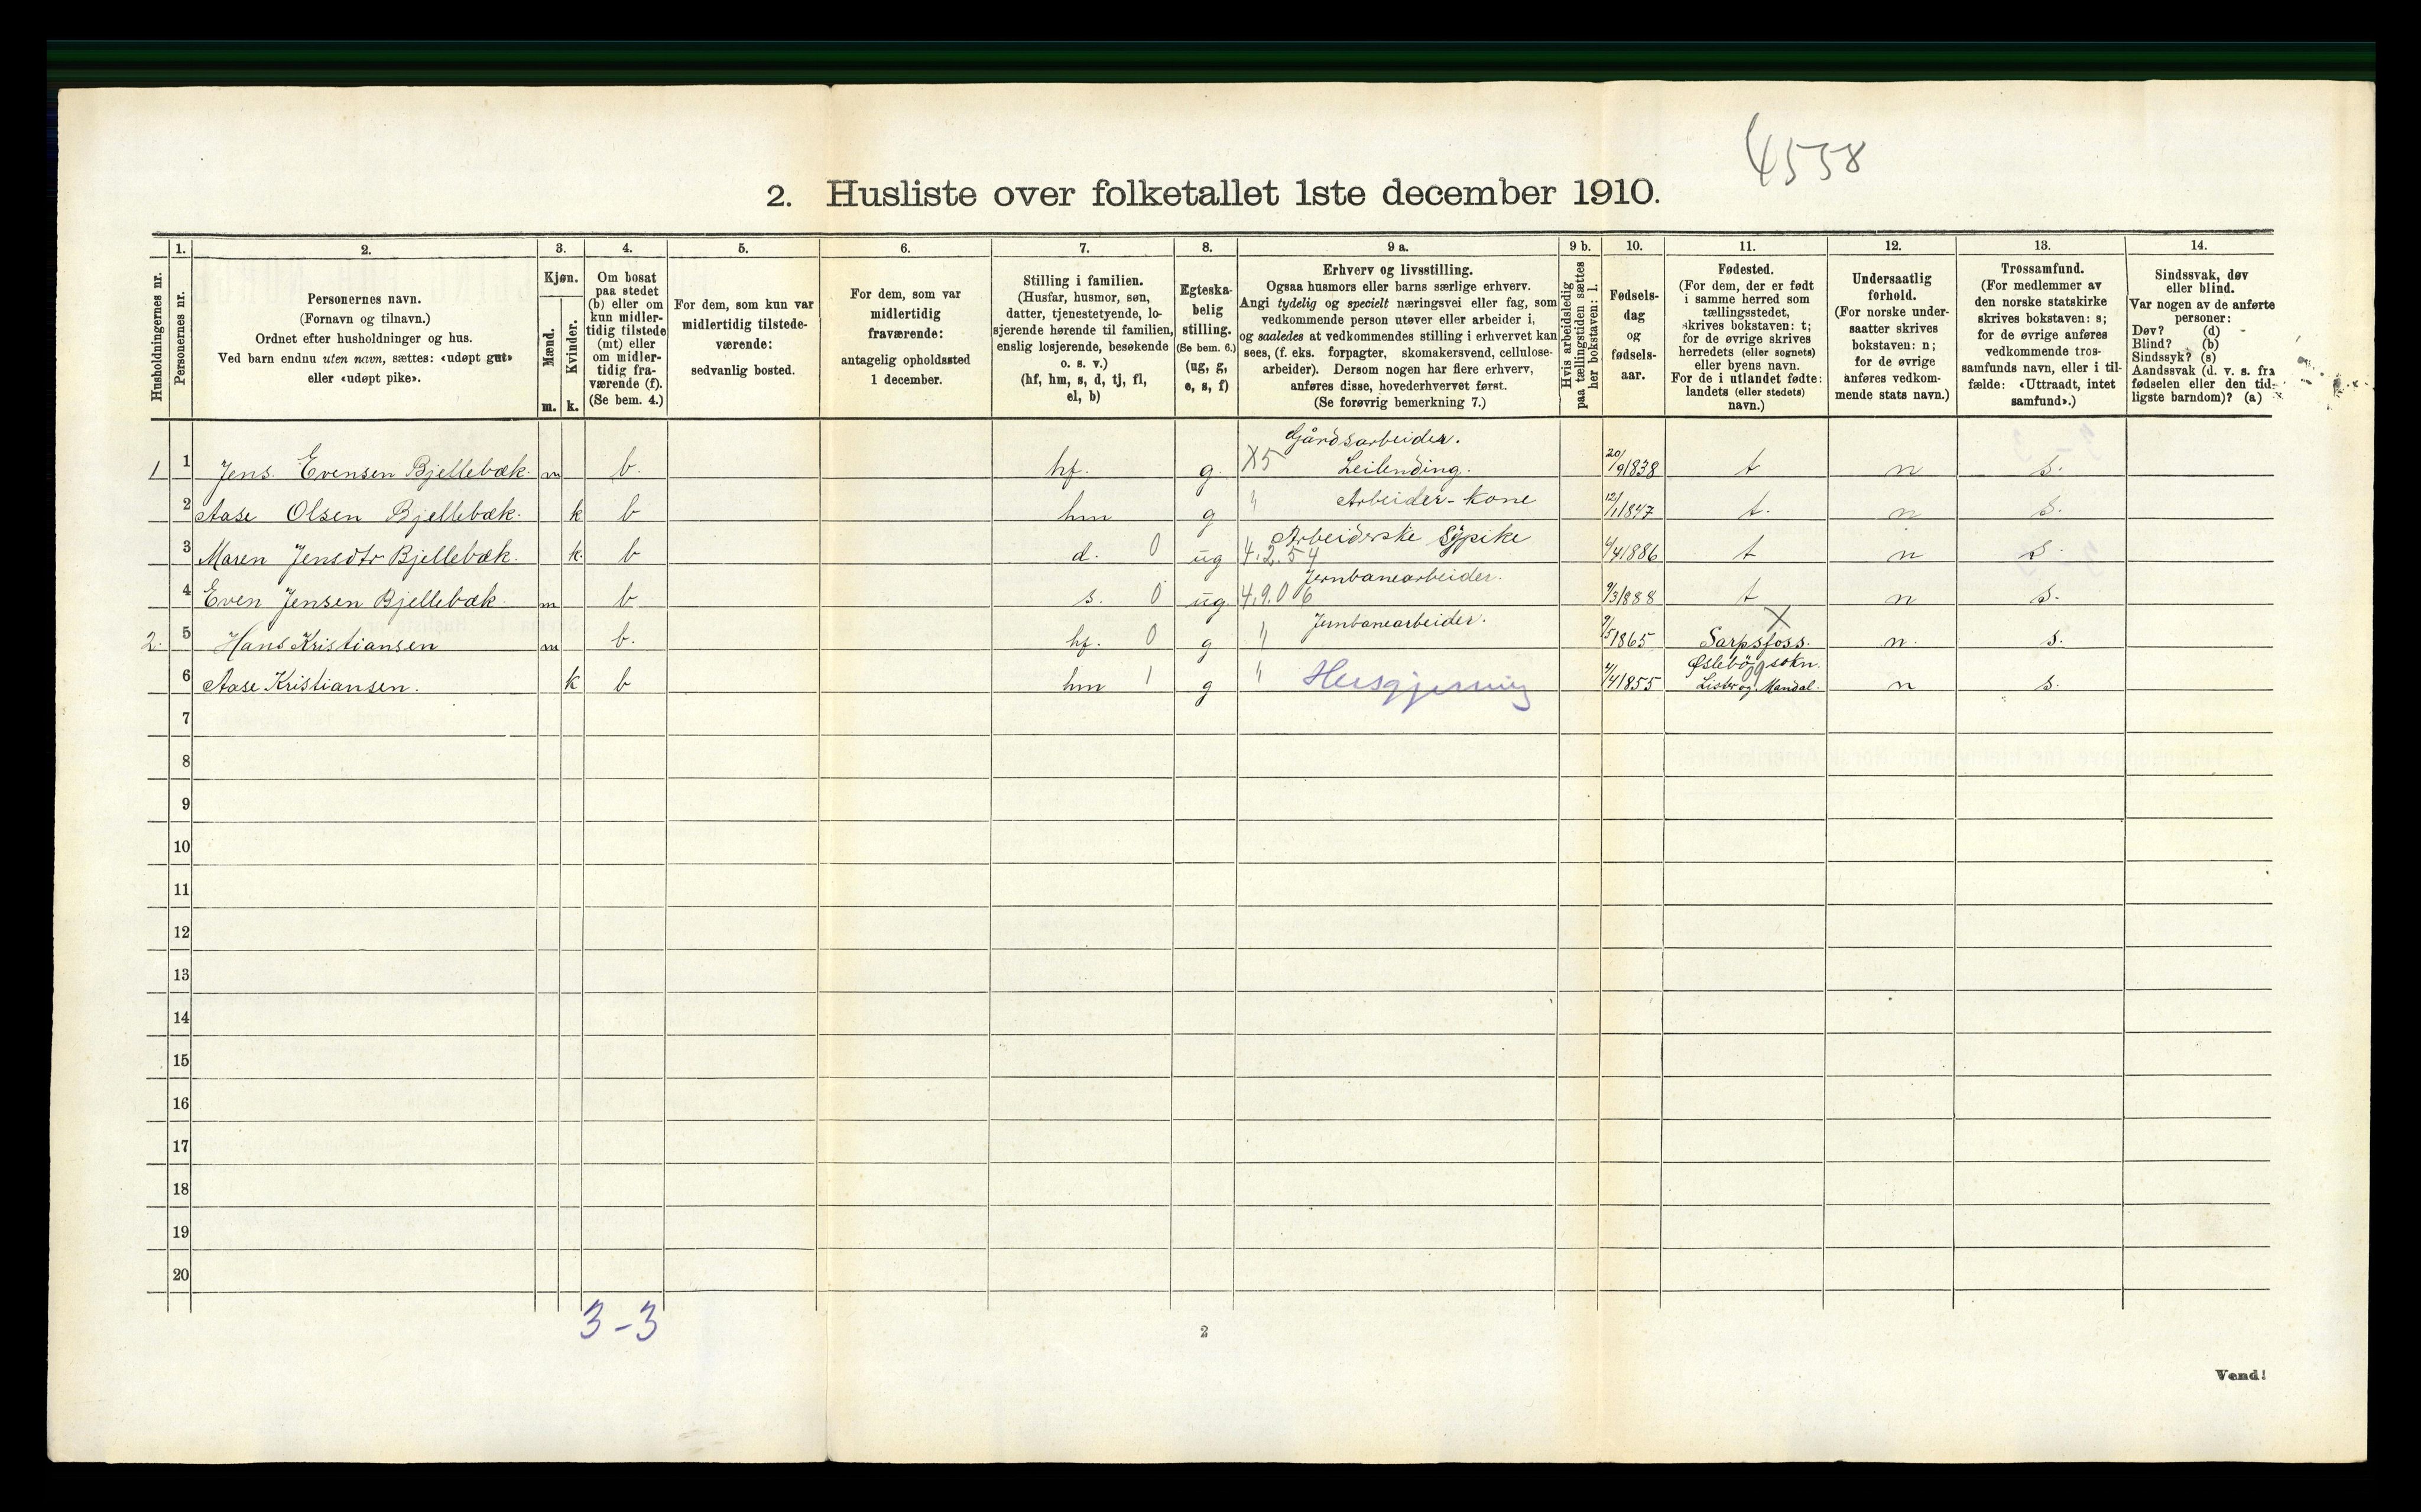 4558
2. Husliste over folketallet 1ste december 1910.
Husholdningernes nr.
1. Personernes nr.
2. Personernes navn.
(Fornavn og tilnavn.)
Ordnet efter husholdninger og hus.
Ved barn endnu uten navn, sættes: «udøpt gut»
eller «udøpt pike».
3. Kjøn.
Mænd. m.
Kvinder. k.
4. Om bosat
paa stedet
(b) eller om
kun midler-
tidig tilstede
(mt) eller
om midler-
tidig fra-
værende (f).
(Se bem. 4.)
5. For dem, som kun var
midlertidig tilstede-
værende:
sedvanlig bosted.
6. For dem, som var
midlertidig
fraværende:
antagelig opholdssted
1 december.
7. Stilling i familien.
(Husfar, husmor, søn,
datter, tjenestetyende, lo-
sjerende hørende til familien,
enslig losjerende, besøkende
o. s. v.)
(hf, hm, s, d, tj, fl,
el, b)
8. Egteska-
belig
stilling.
(Se bem. 6.)
(ug, g,
e, s, f)
9 a. Erhverv og livsstilling.
Ogsaa husmors eller barns særlige erhverv.
Angi tydelig og specielt næringsvei eller fag, som
vedkommende person utøver eller arbeider i,
og saaledes at vedkommendes stilling i erhvervet kan
sees, (f. eks. forpagter, skomakersvend, cellulose-
arbeider). Dersom nogen har flere erhverv,
anføres disse, hovederhvervet først.
(Se forøvrig bemerkning 7.)
9 b. Hvis arbeidsledig
paa tællingstiden sættes
her bokstaven: l.
10. Fødsels-
dag
og
fødsels-
aar.
11. Fødested.
(For dem, der er født
i samme herred som
tællingsstedet,
skrives bokstaven: t;
for de øvrige skrives
herredets (eller sognets)
eller byens navn.
For de i utlandet fødte:
landets (eller stedets)
navn.)
12. Undersaatlig
forhold.
(For norske under-
saatter skrives
bokstaven: n;
for de øvrige
anføres vedkom-
mende stats navn.)
13. Trossamfund.
(For medlemmer av
den norske statskirke
skrives bokstaven: s;
for de øvrige anføres
vedkommende tros-
samfunds navn, eller i til-
fælde: «Uttraadt, intet
samfund».)
14. Sindssvak, døv
eller blind.
Var nogen av de anførte
personer:
Døv? (d)
Blind? (b)
Sindssyk? (s)
Aandssvak (d. v. s. fra
fødselen eller den tid-
ligste barndom)? (a)
Gårdsarbeider.
1 1 Jens. Evensen Bjellebæk. m b. hf. g. X5 Leilending. 20/9 1838 t n s.
2 Aase Olsen Bjellebæk. k b hm g " Arbeider-kone 12/1 1847 t. n s.
Arbeiderske Sypike
3 Maren Jensdtr Bjellebæk. k. b d. 0 ug 4.2.54 4/4 1886 t n s.
Jernbanearbeider.
4 Even Jensen Bjellebæk. m b s. 0 ug. 4.9.06 9/3 1888 t n s.
2. 5 Hans Kristiansen m b. hf. 0 g " Jernbanearbeider. 9/5 1865 X Sarpsfoss. n. s.
Øslebøg sokn.
6 Aase Kristiansen. k b hm 1 g " Husgjerning 4/4 1855 Lister og Mandal. n s.
7
8
9
10
11
12
13
14
15
16
17
18
19
20
3-3
2
Vend!